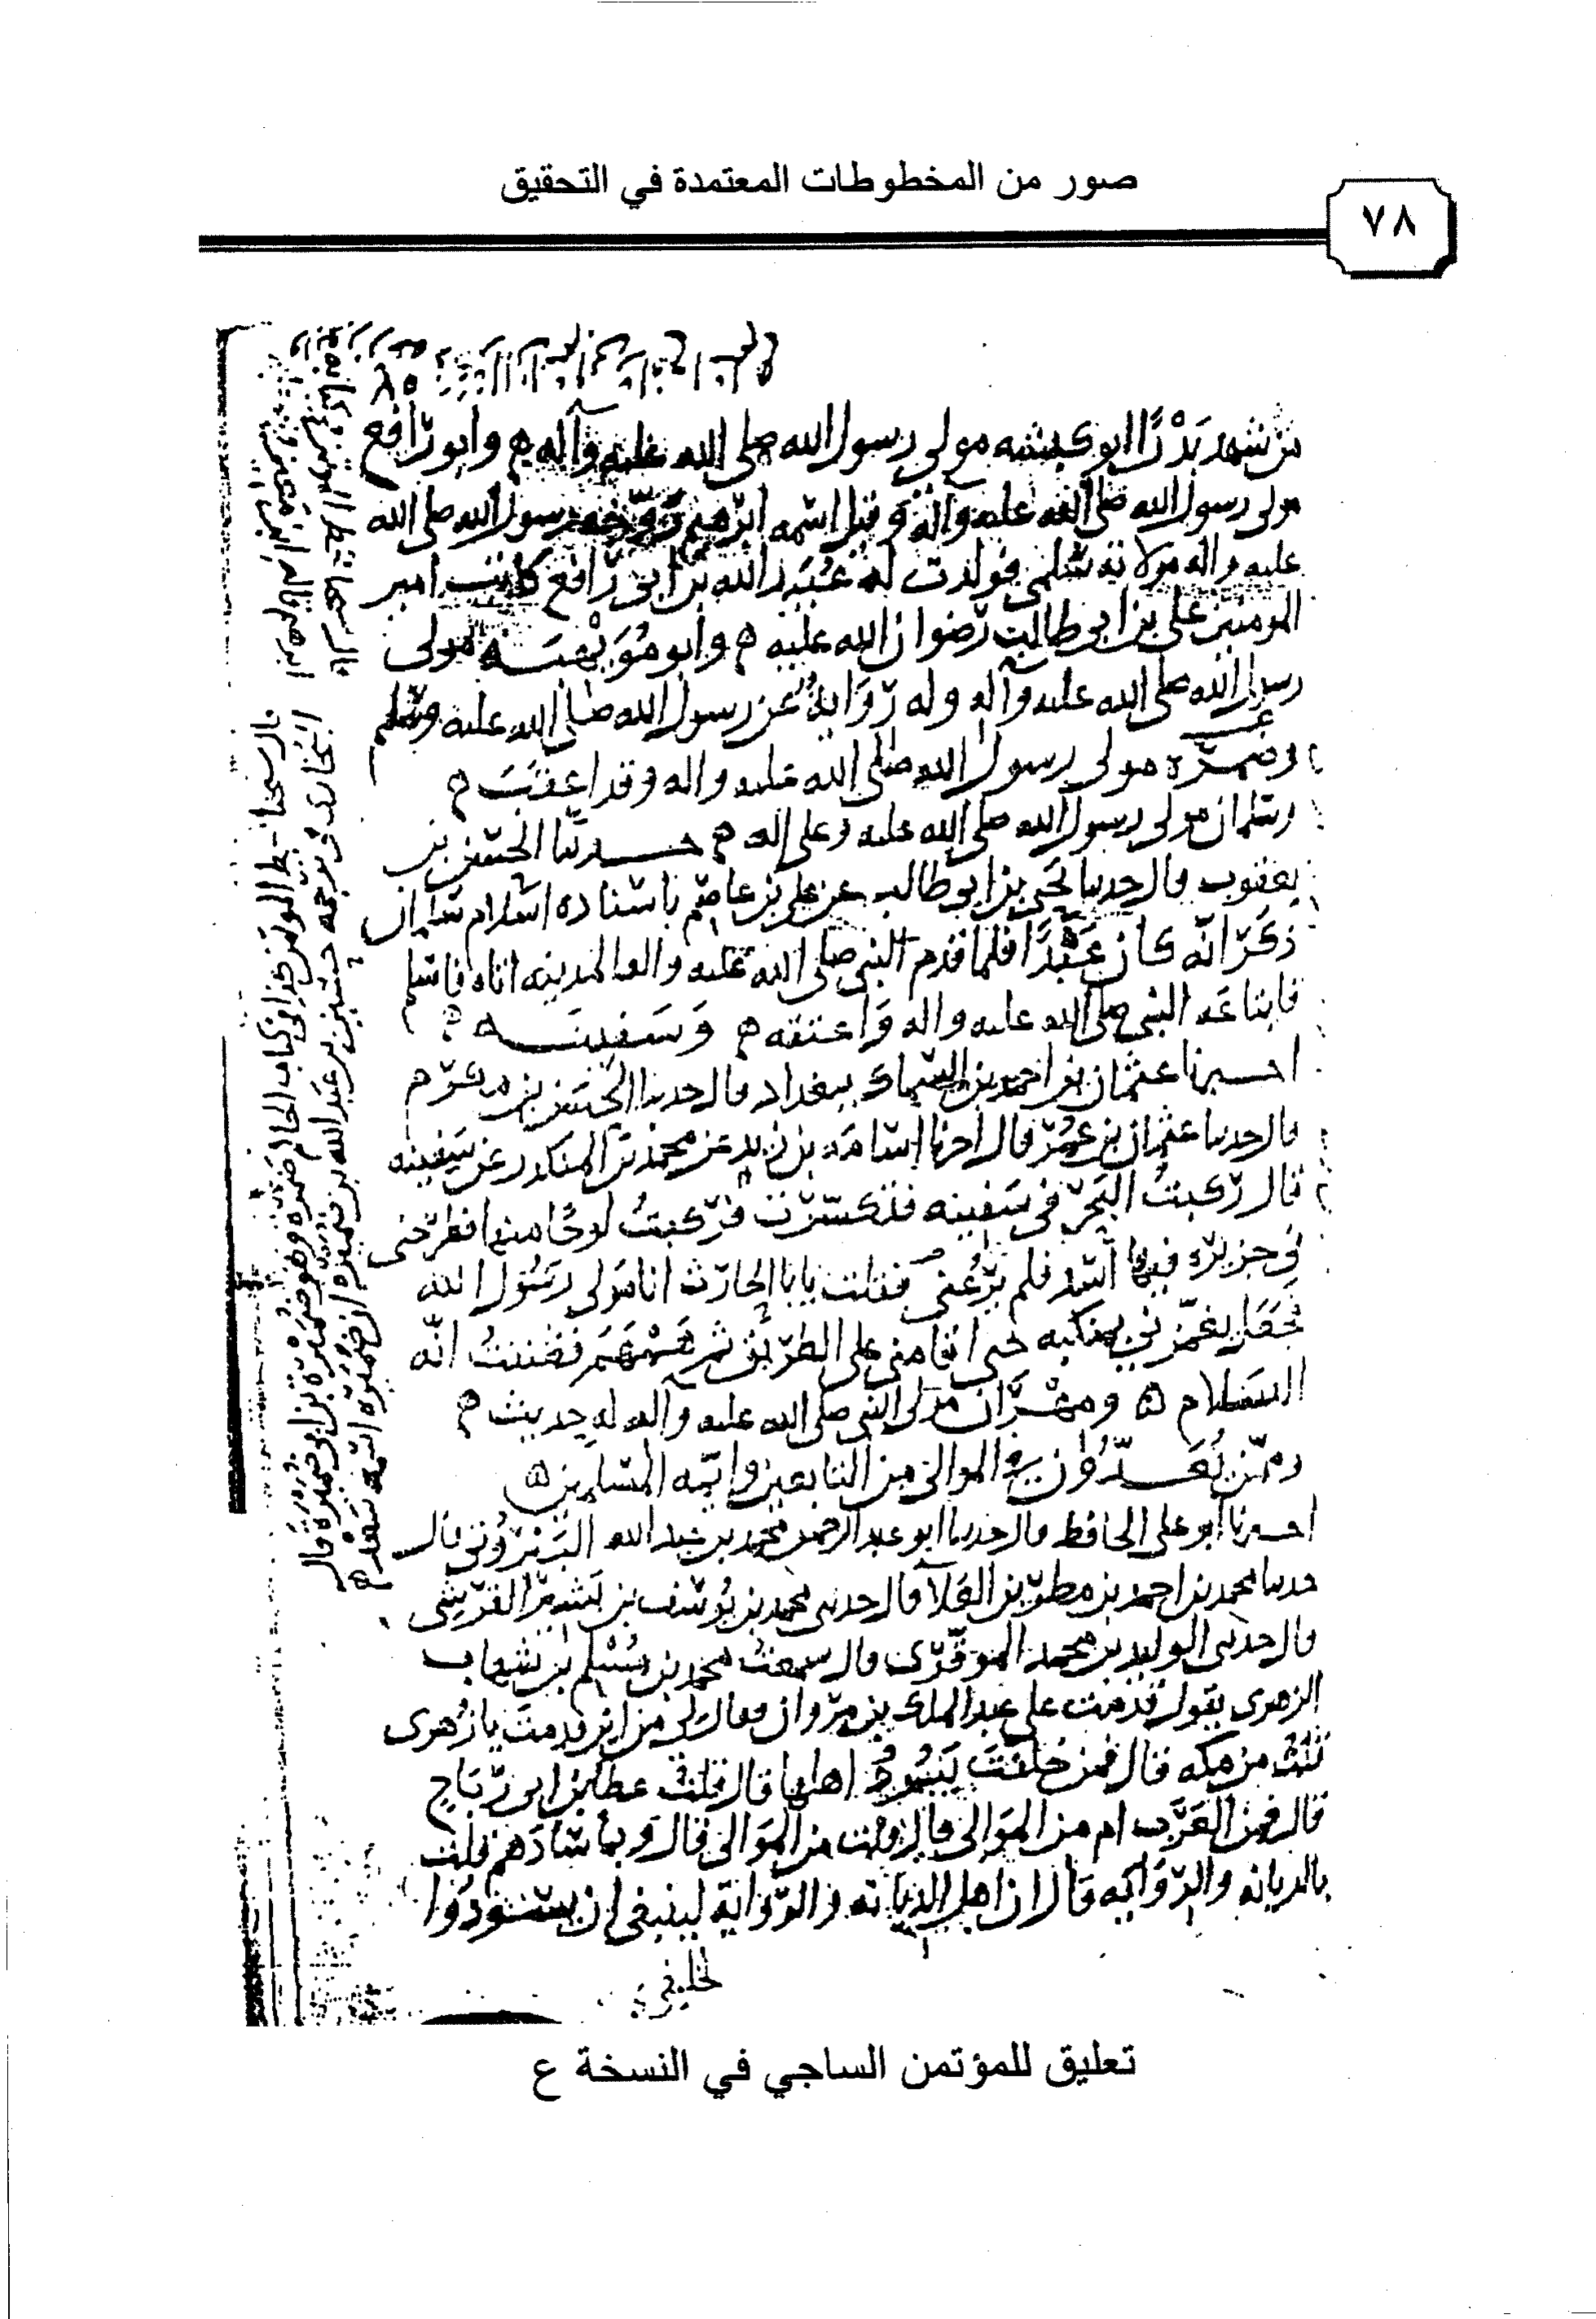 صور من المخطوطات المعتمدة في التحقيق
٧٨
من شهد بدرا ابو كبشه مولى رسول الله صلى الله عليه وآله وابو رافع
مولى رسول الله صلى الله عليه وآله وقيل اسمه ابرهيم زوجه رسول الله صلى الله
عليه واله مولاته سلمى فولدت له عبيد الله بن ابى رافع كاتب امير
المومنين على بن ابى طالب رضوان الله عليه وابو مويهبه مولى
رسول الله صلى الله عليه وآله وله رواية عن رسول الله صلى الله عليه وسلم
وضميره مولى رسول الله صلى الله عليه واله وقد اعقب
وسلمان مولى رسول الله صلى الله عليه وعلى اله حدثنا الحسين بن
يعقوب قال حدثنا يحيى بن ابى طالب عن على بن عاصم باسناده اسلام سلمان
ذكر انه كان عبدا فلما قدم النبى صلى الله عليه واله المدينه اتاه فاسلم
فابتاعه النبى صلى الله عليه واله واعتقه وسفينه
اخبرنا عثمان بن احمد بن السماك ببغداد قال حدثنا الحسن بن مكرم
قال حدثنا عثمان بن عمر قال اخبرنا اسامه بن زيد عن محمد بن المنكدر عن سفينه
قال ركبت البحر فى سفينه فتكسرت فركبت لوحا منها فطرحنى
فى جزيره فيها اسد فلم يرعنى فقلت يابا الحارث انا مولى رسول الله
فجعل يغمزنى بمنكبه حتى اقامنى على الطريق ثم همهم فظننت انه
السلام ومهران مولى النبى صلى الله عليه وآله له حديث
وممن يعدون فى الموالى من التابعين وايمه المسلمين
اخبرنا ابو على الحافظ قال حدثنا ابو عبد الرحمن محمد بن عبد الله البيروتى قال
حدثنا محمد بن احمد بن مطر بن العلآ قال حدثنى محمد بن يوسف بن بشير القرشى
قال حدثنى الوليد بن محمد الموقرى قال سمعت محمد بن مسلم بن شهاب
الزهرى يقول قدمت على عبد الملك بن مروان فقال لى من اين قدمت يا زهرى
قلت من مكه قال فمن خلفت يسود اهلها قال قلت عطا بن ابى رباح
قال فمن العرب ام من الموالى قال قلت من الموالى قال وبما سادهم قلت
بالديانه والروايه قال ان اهل الديانه والرواية لينبغى ان يسودوا
قال شيخنا بخط المؤتمن كذا فى كتاب الحاكم ضمره وهو ضميرة بن ابى ضميرة قال
البخارى فى ترجمه حسين بن عبد الله بن ضميره ان ضميره اسمه سعد
تعليق للمؤتمن الساجي في النسخة ع